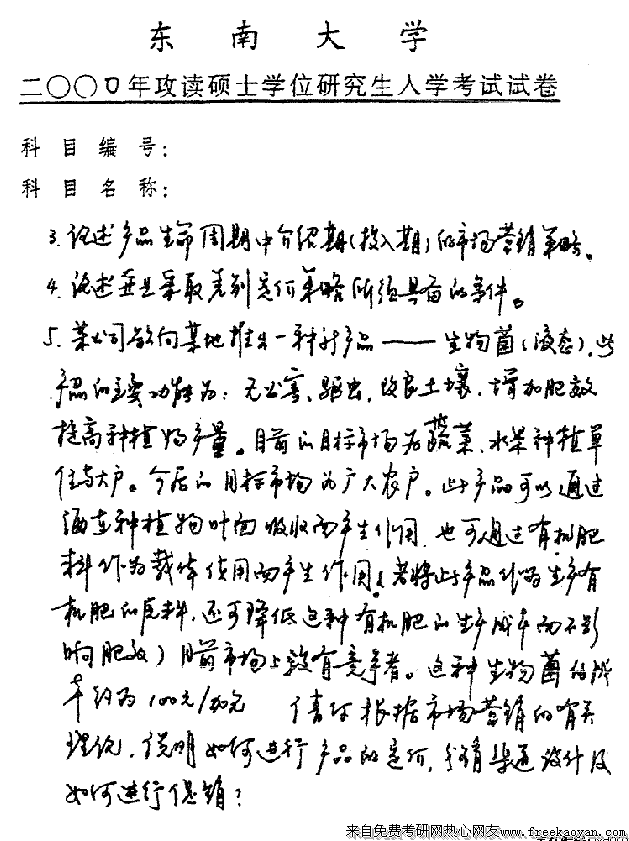 东南大学
二〇〇〇年攻读硕士学位研究生入学考试试卷
科目编号:
科目名称:
3. 论述产品生命周期中介绍期(投入期)的市场营销策略。
4. 论述企业采取差别定价策略所须具备的条件。
5. 某公司欲向某地推出一种新产品——生物菌(液态),此
产品的主要功能为:无公害、驱虫、改良土壤、增加肥效
提高种植物产量。目前的目标市场为蔬菜、水果种植单
位与大户。今后的目标市场为广大农户。此产品可以通过
洒在种植物叶面吸收而产生作用,也可通过有机肥
料作为载体使用而产生作用(若将此产品作为生产有
机肥的原料,还可降低这种有机肥的生产成本而不影
响肥效)目前市场上没有竞争者。这种生物菌的成
本约为100元/ 请你根据市场营销的有关
理论,说明如何进行产品的定价,分销渠道设计及
如何进行促销?
来自免费考研网热心网友www.freekaoyan.com